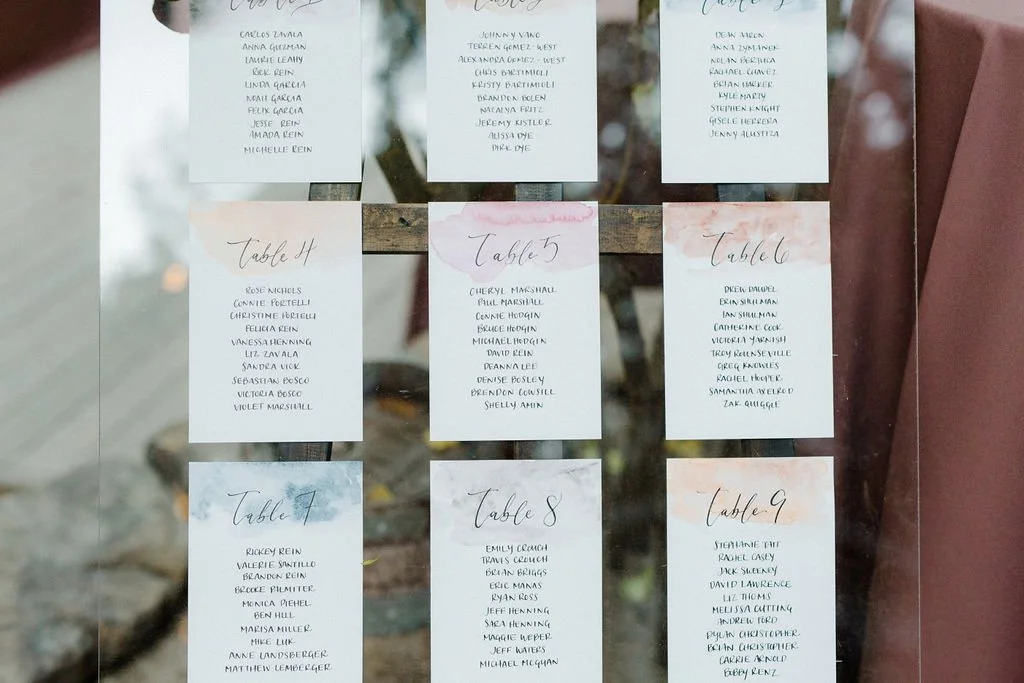 Table 1
CARLOS ZAVALA
ANNA GUZMAN
LAURIE LEAHY
RICK REIN
LINDA GARCIA
NOAH GARCIA
FELIX GARCIA
JESSE REIN
AMADA REIN
MICHELLE REIN
Table 2
JOHNNY VANO
TERREN GOMEZ-WEST
ALEXANDRA GOMEZ-WEST
CHRIS BARTIMIOLI
KRISTY BARTIMIOLI
BRANDON BOLEN
NATALYA FRITZ
JEREMY KISTLER
ALISSA DYE
DIRK DYE
Table 3
DEAN AARON
ANNA ZYMANEK
NOLAN BERTHCA
RACHAEL CHAVEZ
BRIAN HARKER
KYLE MARTY
STEPHEN KNIGHT
GISELE HERRERA
JENNY ALUSTIZA
Table 4
ROSE NICHOLS
CONNIE PORTELLI
CHRISTINE PORTELLI
FELICIA REIN
VANESSA HENNING
LIZ ZAVALA
SANDRA VICK
SEBASTIAN BOSCO
VICTORIA BOSCO
VIOLET MARSHALL
Table 5
CHERYL MARSHALL
PAUL MARSHALL
CONNIE HODGIN
BRUCE HODGIN
MICHAEL HODGIN
DAVID REIN
DEANNA LEE
DENISE BOSLEY
BRENDON COWSILL
SHELLY AMIN
Table 6
DREW DAUDEL
ERIN SHULMAN
IAN SHULMAN
CATHERINE COOK
VICTORIA YARNISH
TROY ROUNSEVILLE
GREG KNOWLES
RACHEL HOOPER
SAMANTHA AXELROD
ZAK QUIGGLE
Table 7
RICKEY REIN
VALERIE SANTILLO
BRANDON REIN
BROOKE PILMITER
MONICA PIEHEL
BEN HILL
MARISA MILLER
MIKE LUK
ANNE LANDSBERGER
MATTHEW LEMBERGER
Table 8
EMILY CROUCH
TRAVIS CROUCH
BRIAN BRIGGS
ERIC MANAS
RYAN ROSS
JEFF HENNING
SARA HENNING
MAGGIE WEBER
JEFF WATERS
MICHAEL MCGHAN
Table 9
STEPHANIE TAIT
RACHEL CASEY
JACK SWEENEY
DAVID LAWRENCE
LIZ THOMS
MELISSA CUTTING
ANDREW FORD
DYLAN CHRISTOPHER
BRIAN CHRISTOPHER
CARRIE ARNOLD
BOBBY RENZ